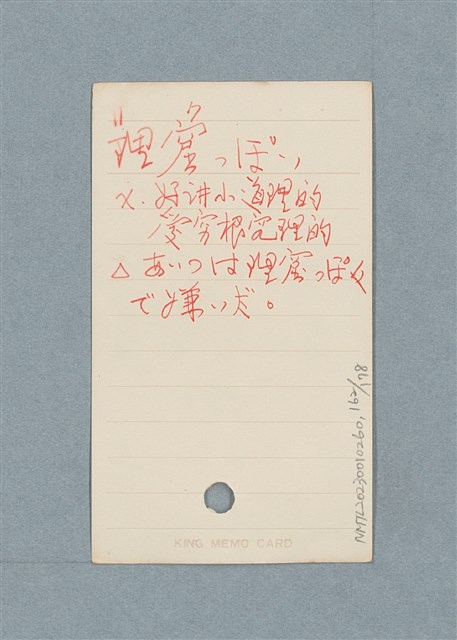 "理窟っぽい
x. 好讲小道理的
爱穷根究理的
△ あいつは理窟っぽく
で嫌いだ。
KING MEMO CARD